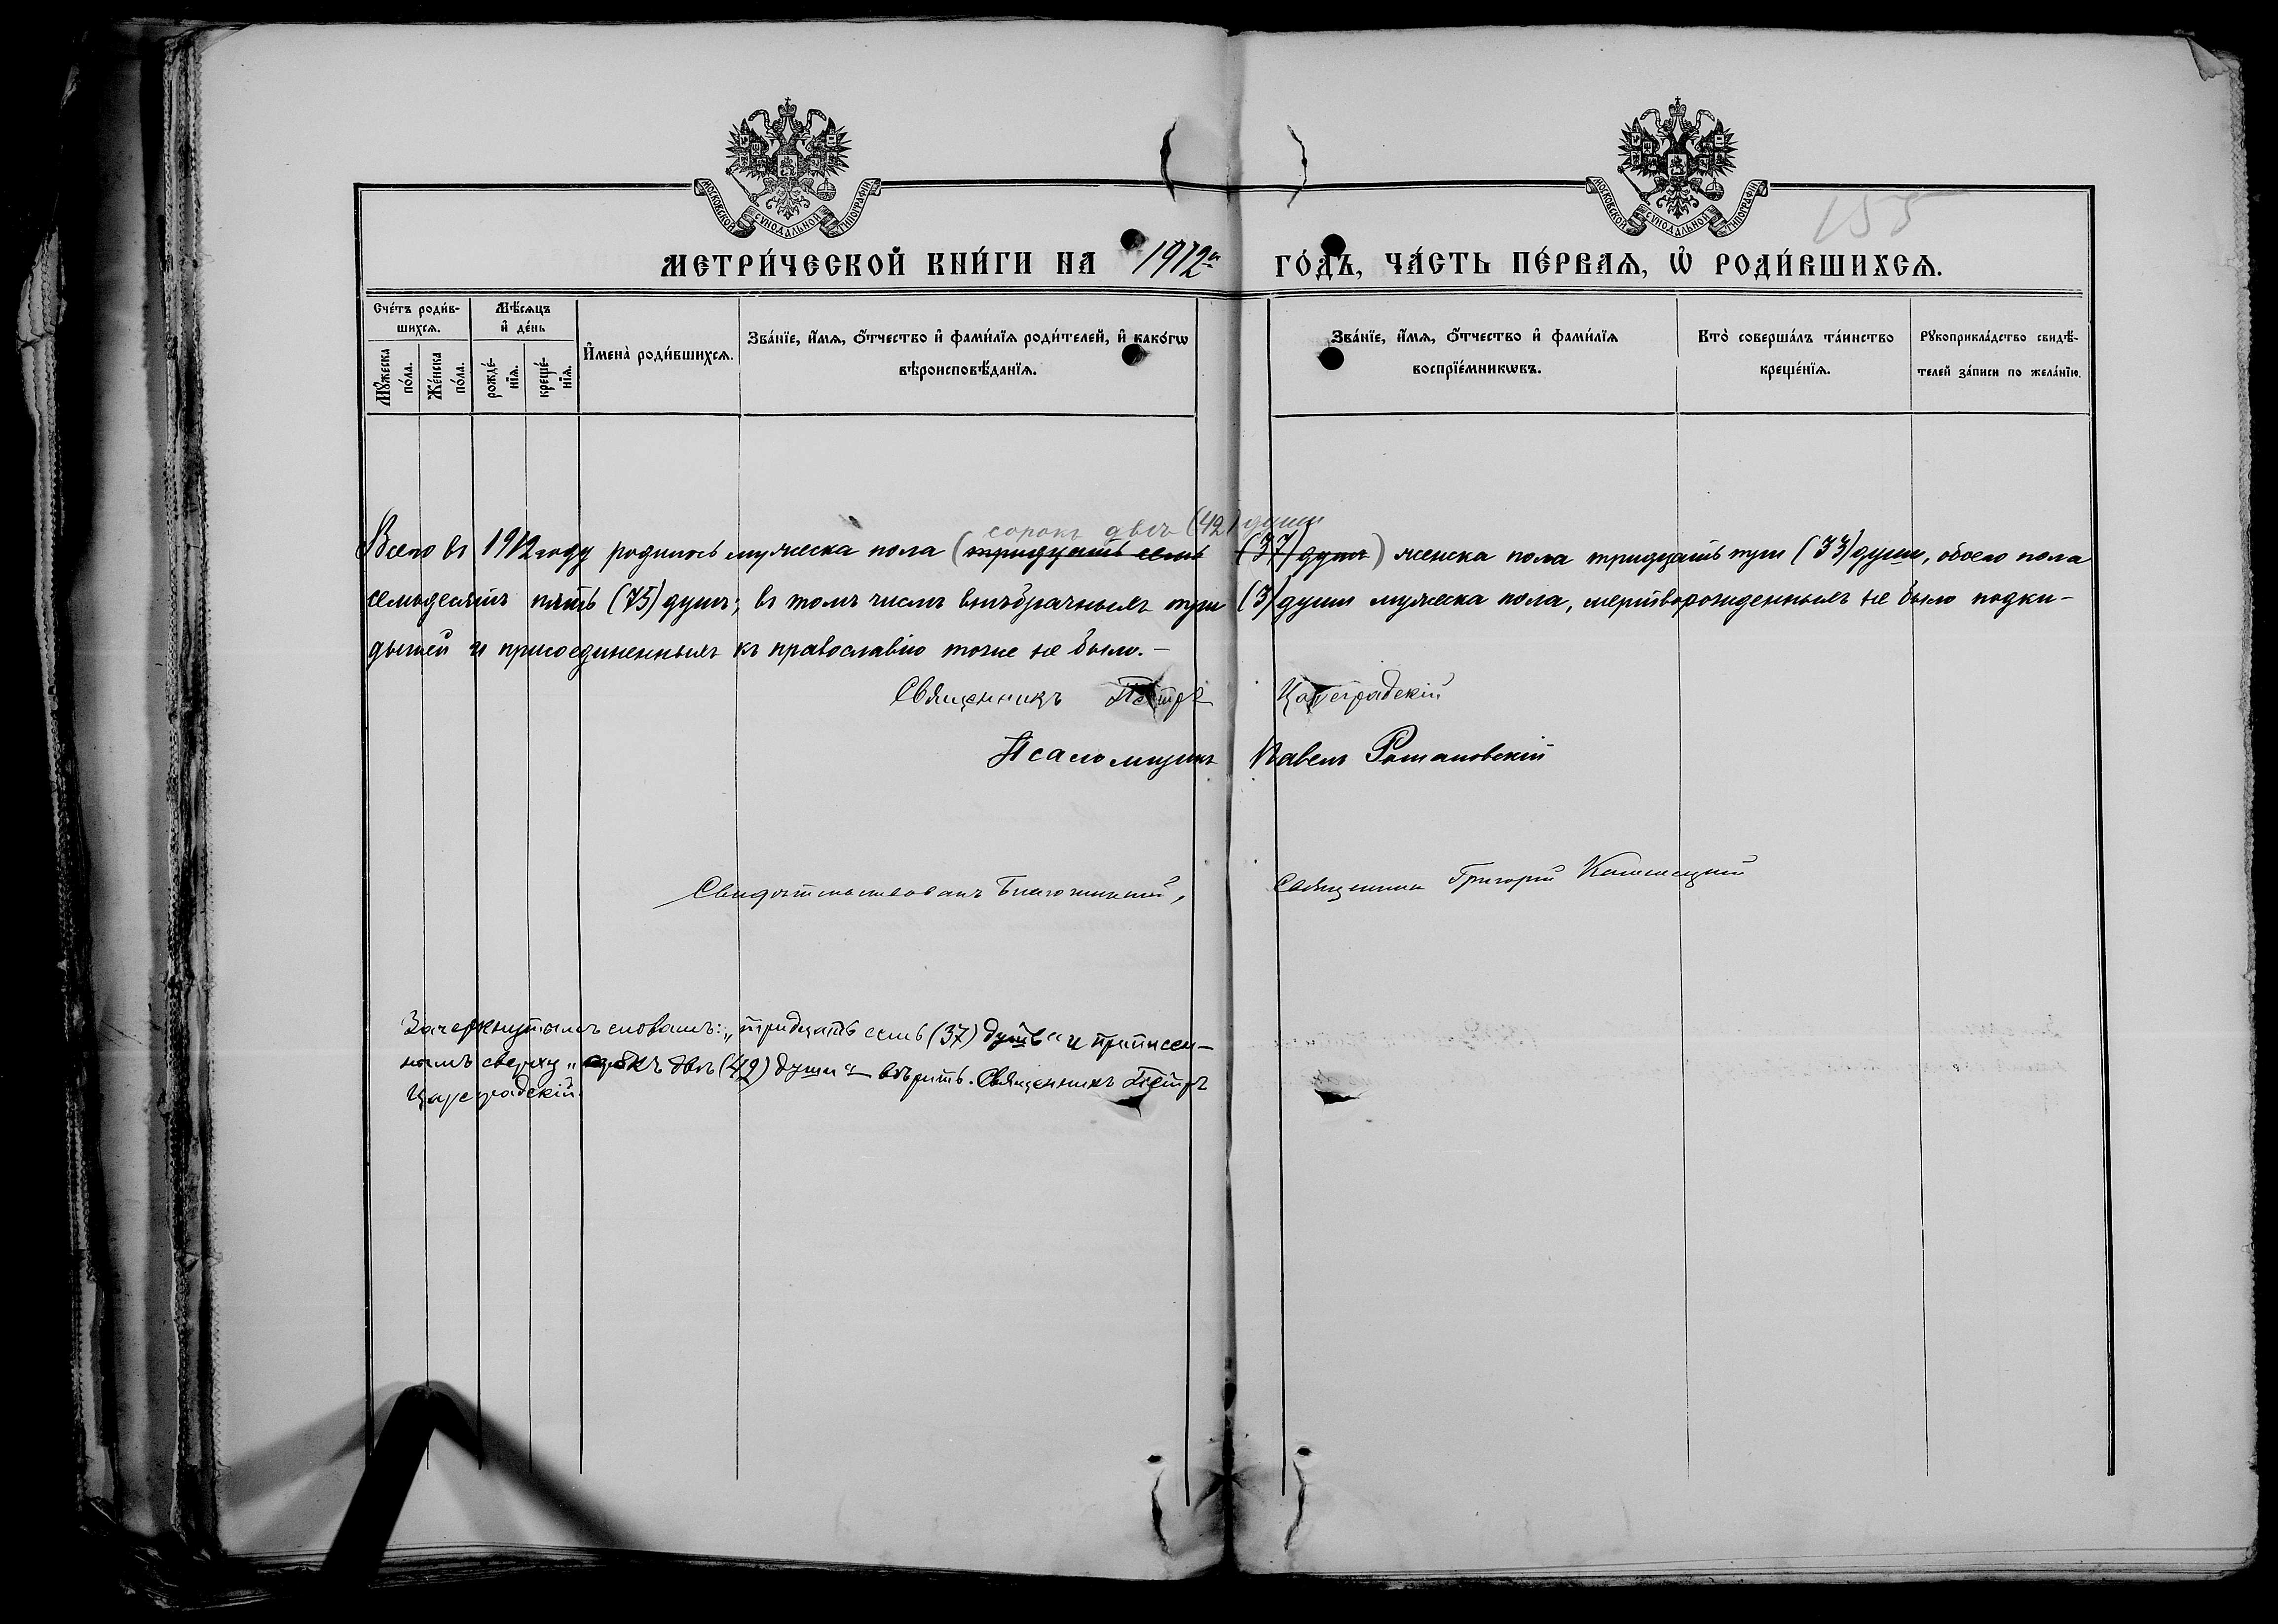 МОСКОВСКОЙ СѴНОДАЛЬНОЙ ТИПОГРАФІИ
МОСКОВСКОЙ СѴНОДАЛЬНОЙ ТИПОГРАФІИ
155
МЕТРИ́ЧЕСКОЙ КНИ́ГИ НА 1912й ГО́ДЪ, ЧА́СТЬ ПЕ́РВАѦ, Ѡ҆ РОДИ́ВШИХСѦ.
Сче́тъ роди́в-
шихсѧ.
Мꙋ́жеска по́ла.
Же́нска по́ла.
Мѣ́сѧцъ
и҆ де́нь
рожде́-
нїѧ.
креще́-
нїѧ.
И҆мена̀ роди́вшихсѧ.
Зва́нїе, и҆́мѧ, ѻ҆́тчество и҆ фами́лїѧ роди́телей, и҆ како́гѡ
вѣроисповѣ́данїѧ.
Зва́нїе, и҆́мѧ, ѻ҆́тчество и҆ фами́лїѧ
воспрїе́мникѡвъ.
Кто̀ соверша́лъ та́инство
креще́нїѧ.
Рꙋкоприкла́дство свидѣ́-
телей за́писи по жела́нїю.
сорокъ двѣ (42) души
Всего въ 1912 году родилось мужеска пола (тридцать семь (37) душъ) женска пола тридцать три (33) души, обоего пола
семьдесятъ пять (75) душъ; въ томъ числѣ внѣбрачныхъ три (3) души мужеска пола, мертворожденныхъ не было подки-
дышей и присоединенныхъ къ православію тоже не было.-
Священникъ Петръ Цареградскій
Псаломщикъ Павелъ Романовскій
Свидѣтельствовалъ Благочинный, Священникъ Григорій
Зачеркнутымъ словамъ: „тридцать семь (37) душъ" и приписан-
нымъ сверху „сорокъ двѣ (42) души" вѣрить. Священникъ Петръ
Цареградскій.